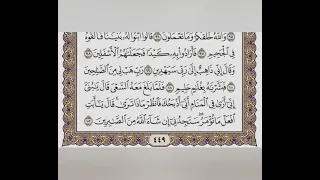 وَٱللَّهُ خَلَقَكُمْ وَمَا تَعْمَلُونَ ٩٦ قَالُوا۟ ٱبْنُوا۟ لَهُۥ بُنْيَٰنًا فَأَلْقُوهُ
فِى ٱلْجَحِيمِ ٩٧ فَأَرَادُوا۟ بِهِۦ كَيْدًا فَجَعَلْنَٰهُمُ ٱلْأَسْفَلِينَ ٩٨
وَقَالَ إِنِّى ذَاهِبٌ إِلَىٰ رَبِّى سَيَهْدِينِ ٩٩ رَبِّ هَبْ لِى مِنَ ٱلصَّٰلِحِينَ ١٠٠
فَبَشَّرْنَٰهُ بِغُلَٰمٍ حَلِيمٍ ١٠١ فَلَمَّا بَلَغَ مَعَهُ ٱلسَّعْىَ قَالَ يَٰبُنَىَّ
إِنِّىٓ أَرَىٰ فِى ٱلْمَنَامِ أَنِّىٓ أَذْبَحُكَ فَٱنظُرْ مَاذَا تَرَىٰ ۚ قَالَ يَٰٓأَبَتِ
ٱفْعَلْ مَا تُؤْمَرُ ۖ سَتَجِدُنِىٓ إِن شَآءَ ٱللَّهُ مِنَ ٱلصَّٰبِرِينَ ١٠٢
٤٤٩